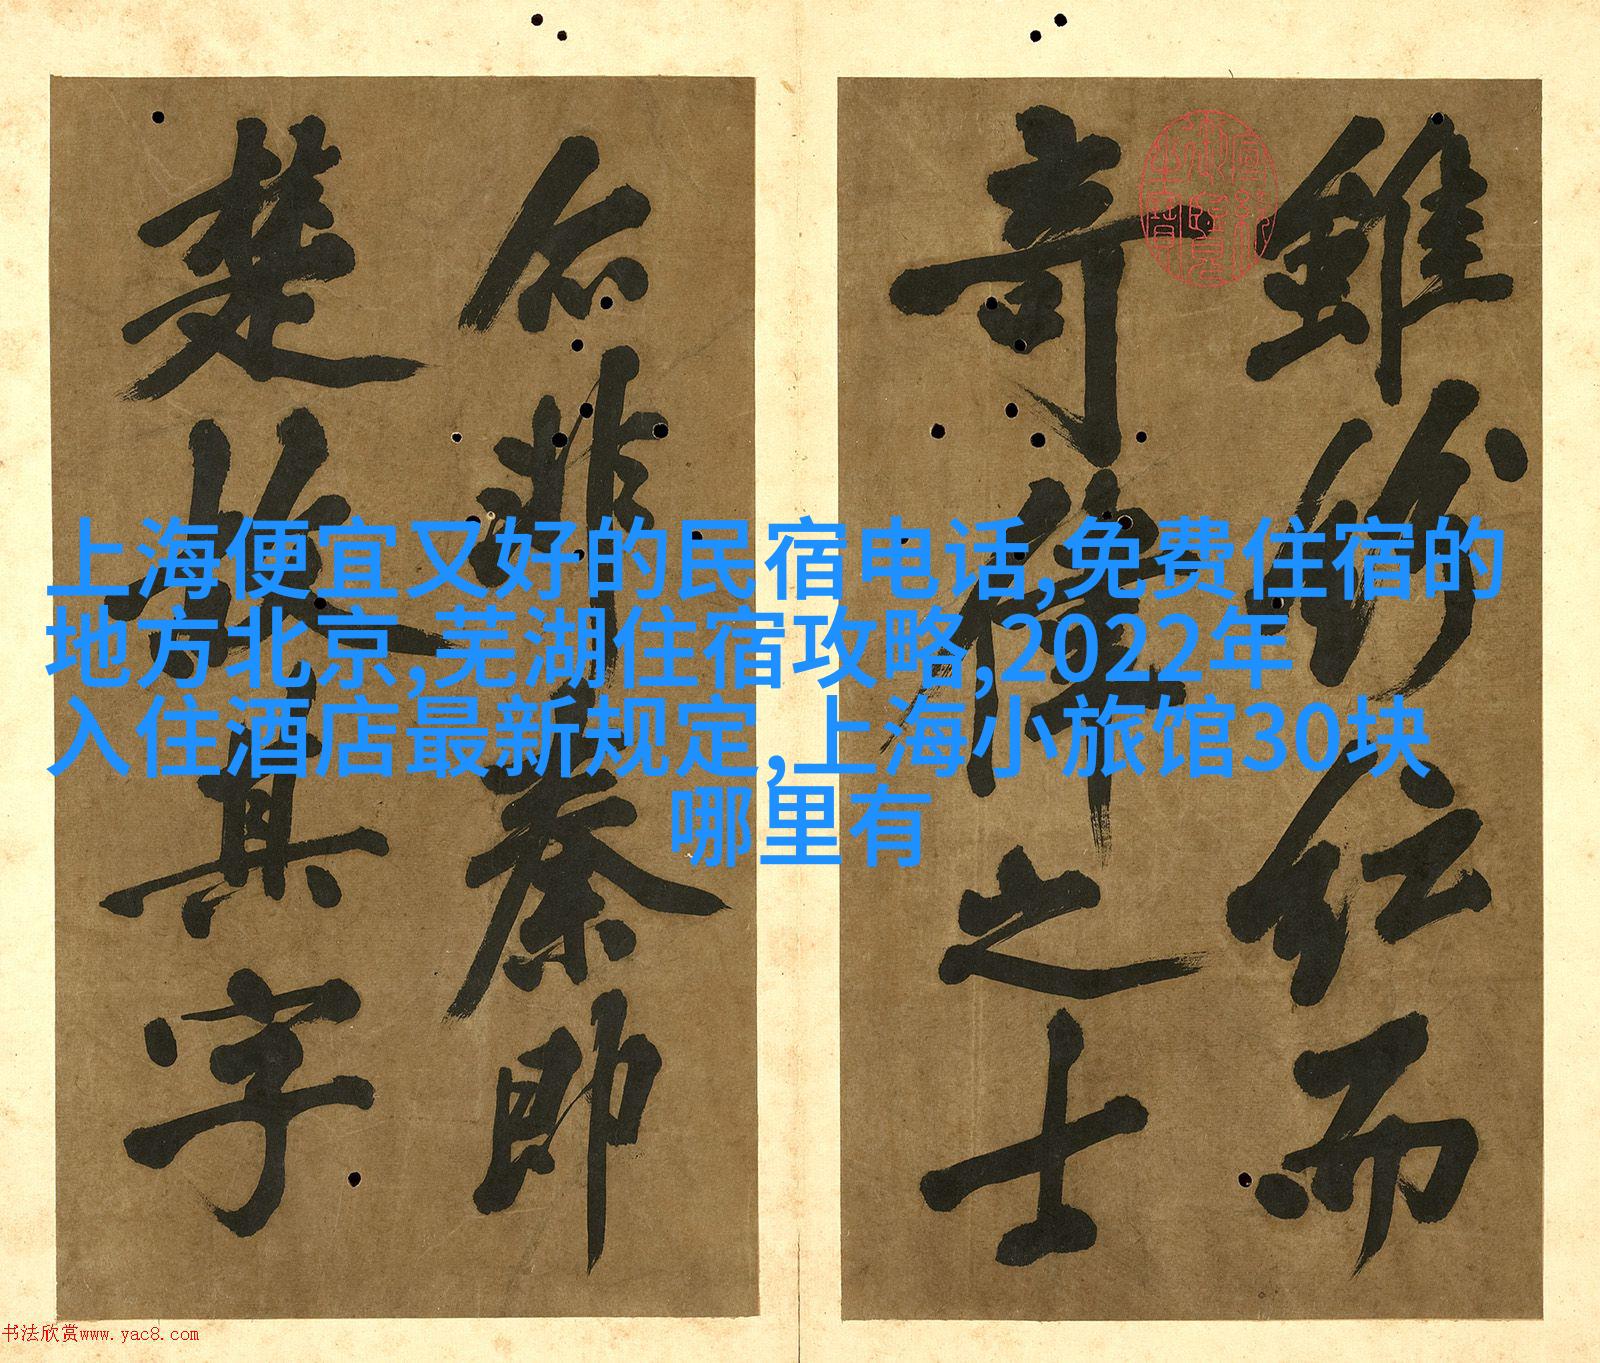 雖紛紜而
奇偉之士
不非秦即
楚故其字
上海便宜又好的民宿电话,免费住宿的
地方北京,芜湖住宿攻略,2022年
入住酒店最新规定,上海小旅馆30块
哪里有
书法欣赏www.yac8.com